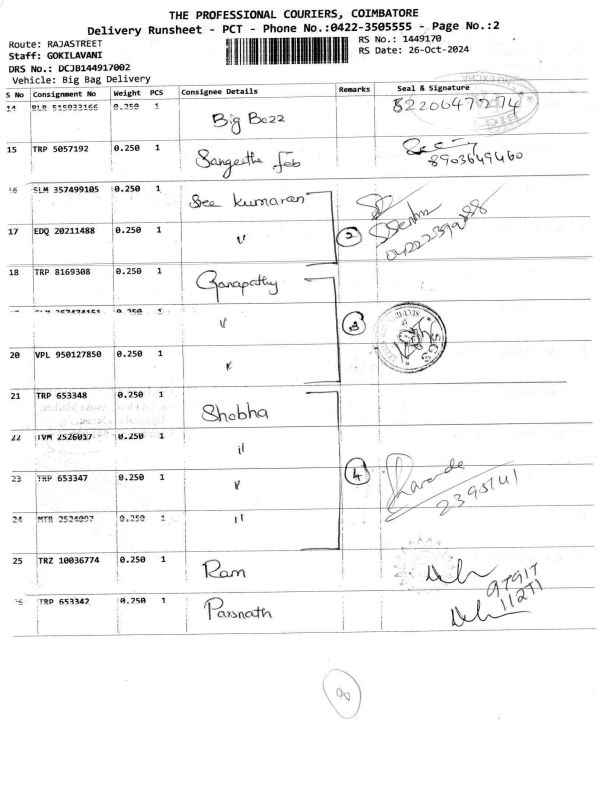 THE PROFESSIONAL COURIERS, COIMBATORE
Delivery Runsheet - PCT - Phone No.:0422-3505555 - Page No.:2
Route: RAJASTREET
RS No.: 1449170
Staff: GOKILAVANI
RS Date: 26-Oct-2024
DRS No.: DCJB144917002
Vehicle: Big Bag Delivery
S No Consignment No Weight PCS Consignee Details Remarks Seal & Signature
14 0.250 1 Big Bazz
15 TRP 5057192 0.250 1 Sangeetha 8903649460
16 SLM 357499105 0.250 1 Sree Kumaran
17 EDQ 20211488 0.250 1 " 2
18 TRP 8169308 0.250 1 Ganapathy
0.250 " 3
20 VPL 950127850 0.250 1 "
21 TRP 653348 0.250 1 Shobha
22 TVM 2526017 0.250 1 "
23 TRP 653347 0.250 1 " 4 2395141
24 MTR 0.250 1 "
25 TRZ 10036774 0.250 1 Ram
TRP 653342 0.250 1 Parsnath